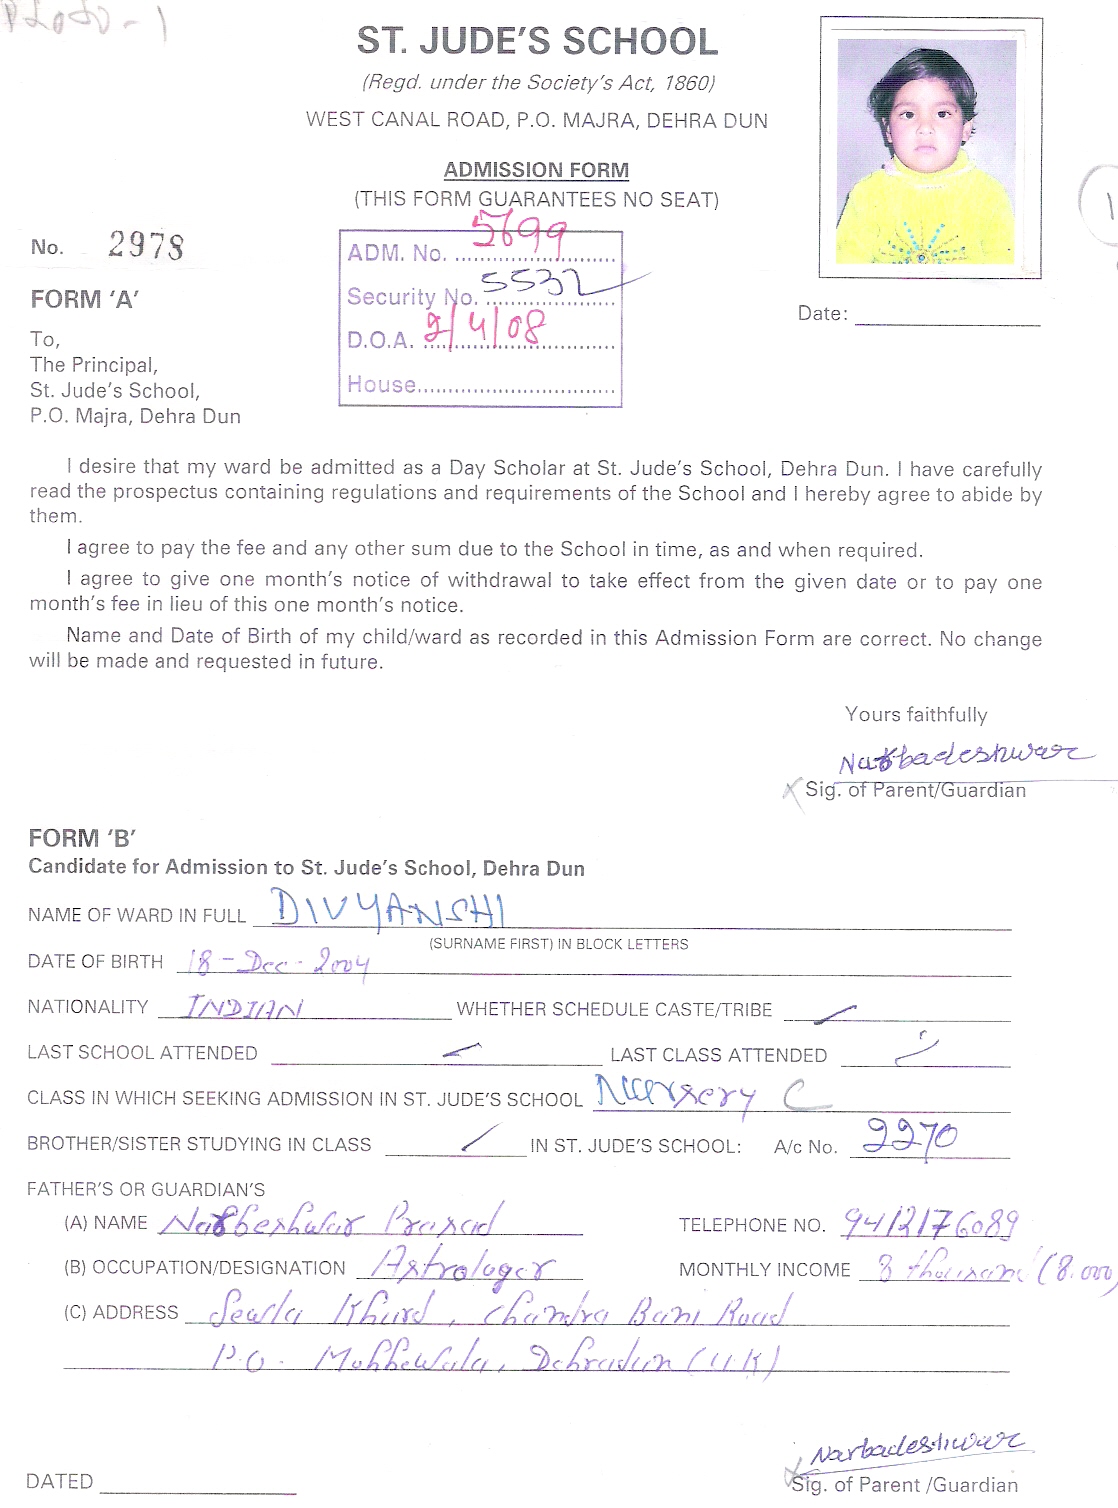 ST. JUDE'S SCHOOL
(Regd. under the Society's Act, 1860)
WEST CANAL ROAD, P.O. MAJRA, DEHRA DUN
ADMISSION FORM
(THIS FORM GUARANTEES NO SEAT)
No. 2978
ADM. No. 5699
Security No. 5532
D.O.A. 2/4/08
House
Date:
FORM 'A'
To,
The Principal,
St. Jude's School,
P.O. Majra, Dehra Dun
I desire that my ward be admitted as a Day Scholar at St. Jude's School, Dehra Dun. I have carefully
read the prospectus containing regulations and requirements of the School and I hereby agree to abide by
them.
I agree to pay the fee and any other sum due to the School in time, as and when required.
I agree to give one month's notice of withdrawal to take effect from the given date or to pay one
month's fee in lieu of this one month's notice.
Name and Date of Birth of my child/ward as recorded in this Admission Form are correct. No change
will be made and requested in future.
Yours faithfully
Narbadeshwar
Sig. of Parent/Guardian
FORM 'B'
Candidate for Admission to St. Jude's School, Dehra Dun
NAME OF WARD IN FULL DIVYANSHI
(SURNAME FIRST) IN BLOCK LETTERS
DATE OF BIRTH 18-Dec-2004
NATIONALITY INDIAN WHETHER SCHEDULE CASTE/TRIBE
LAST SCHOOL ATTENDED LAST CLASS ATTENDED
CLASS IN WHICH SEEKING ADMISSION IN ST. JUDE'S SCHOOL Nursery C
BROTHER/SISTER STUDYING IN CLASS IN ST. JUDE'S SCHOOL: A/c No. 2270
FATHER'S OR GUARDIAN'S
(A) NAME Narbeshwar Prasad TELEPHONE NO. 9412176089
(B) OCCUPATION/DESIGNATION Astrologer MONTHLY INCOME 8 thousand (8.000)
(C) ADDRESS Sewla Khurd, Chandra Bani Road
P.O. Mohhewala, Dehradun (U.K)
Narbadeshwar
DATED
Sig. of Parent /Guardian